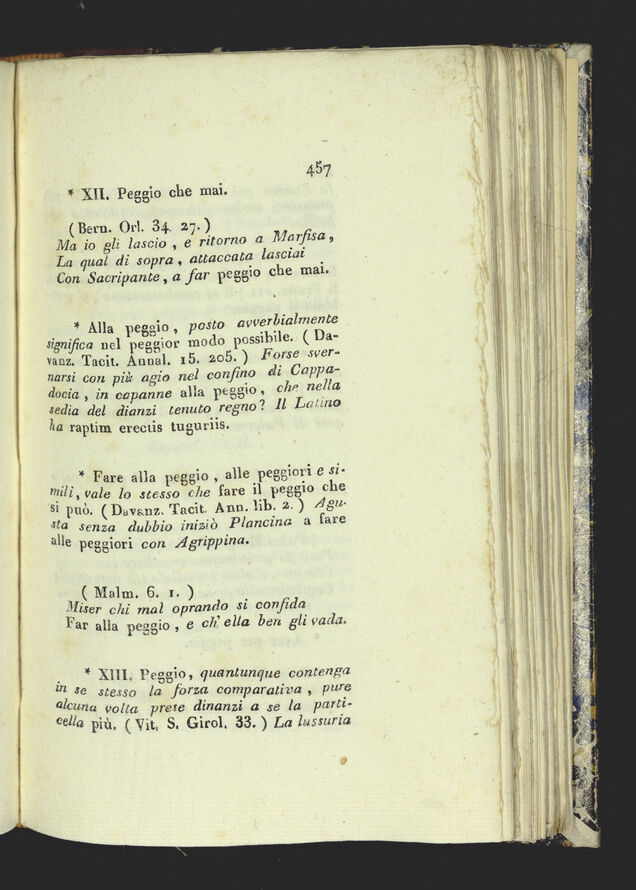 457
* XII. Peggio che mai.
( Bern. Orl. 34. 27. )
Ma io gli lascio , e ritorno a Marfisa ,
La qual di sopra , attaccata lasciai
Con Sacripante , a far peggio che mai.
* Alla peggio , posto avverbialmente
significa nel peggior modo possibile. ( Da-
vanz. Tacit. Annal. 15. 205. ) Forse sver-
narsi con più agio nel confino di Cappa-
docia , in capanne alla peggio , che nella
sedia del dianzi tenuto regno? Il Latino
ha raptim erectis tuguriis.
* Fare alla peggio , alle peggiori e si-
mili, vale lo stesso che fare il peggio che
si può. ( Davanz. Tacit. Ann. lib. 2. ) Agu-
sta senza dubbio iniziò Plancina a fare
alle peggiori con Agrippina.
( Malm. 6. 1. )
Miser chi mal oprando si confida
Far alla peggio , e ch' ella ben gli vada.
* XIII. Peggio, quantunque contenga
in se stesso la forza comparativa , pure
alcuna volta prese dinanzi a se la parti-
cella più. ( Vit. S. Girol. 33. ) La lussuria